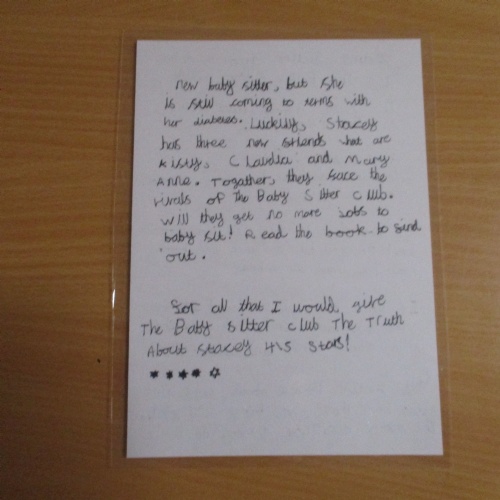 new baby sitter, but she
is still coming to terms with
her diabetes. Luckily, Stacey
has three new friends what are
Kisty, Claudia and Mary
Anne. Together, they face the
rivals of The Baby Sitter Club.
Will they get no more jobs to
baby sit! Read the book to find
out.
For all that I would give
The Baby Sitter Club The Truth
About Stacey 4\5 Stars!
★★★★☆